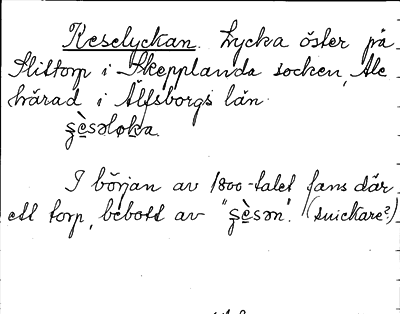 Keselyckan. Lycka öster på
Slittorp i Skepplanda socken, Ale
härad i Älfsborgs län.
I början av 1800-talet fans där
ett torp, bebott av " (snickare?)